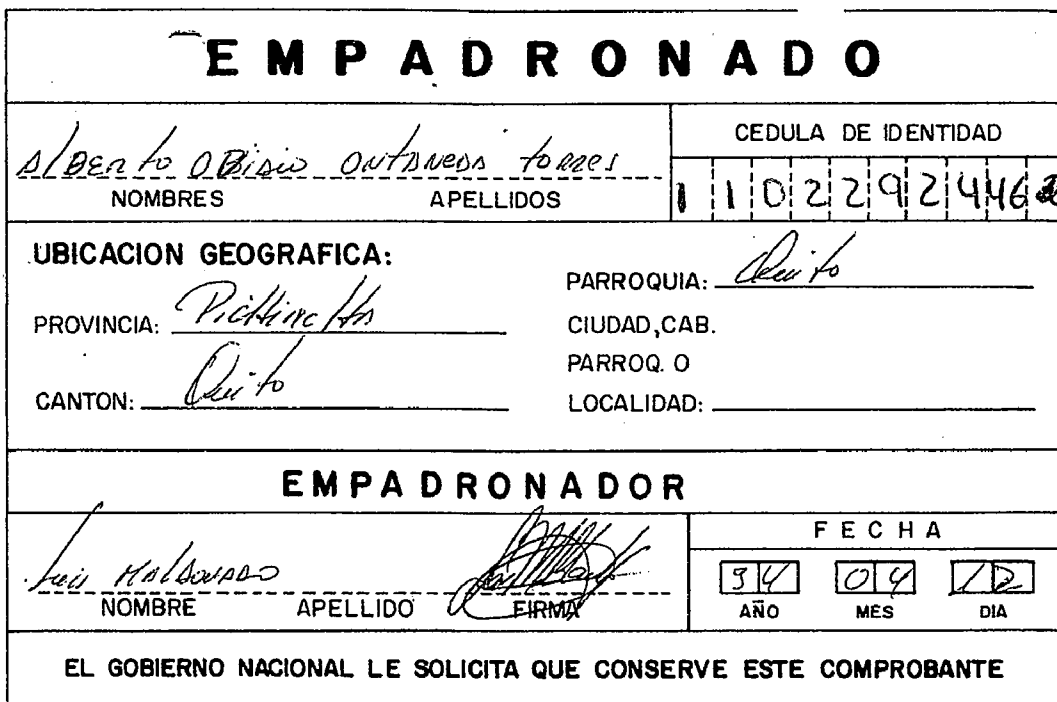 EMPADRONADO
Alberto Obidio Ontaneda Torres
NOMBRES APELLIDOS
CEDULA DE IDENTIDAD
1 1 0 2 2 9 2 4 4 6 2
UBICACION GEOGRAFICA:
PROVINCIA: Pichincha
CANTON: Quito
PARROQUIA: Quito
CIUDAD, CAB.
PARROQ. O
LOCALIDAD:
EMPADRONADOR
Luis Maldonado
NOMBRE APELLIDO FIRMA
FECHA
94 04 12
AÑO MES DIA
EL GOBIERNO NACIONAL LE SOLICITA QUE CONSERVE ESTE COMPROBANTE